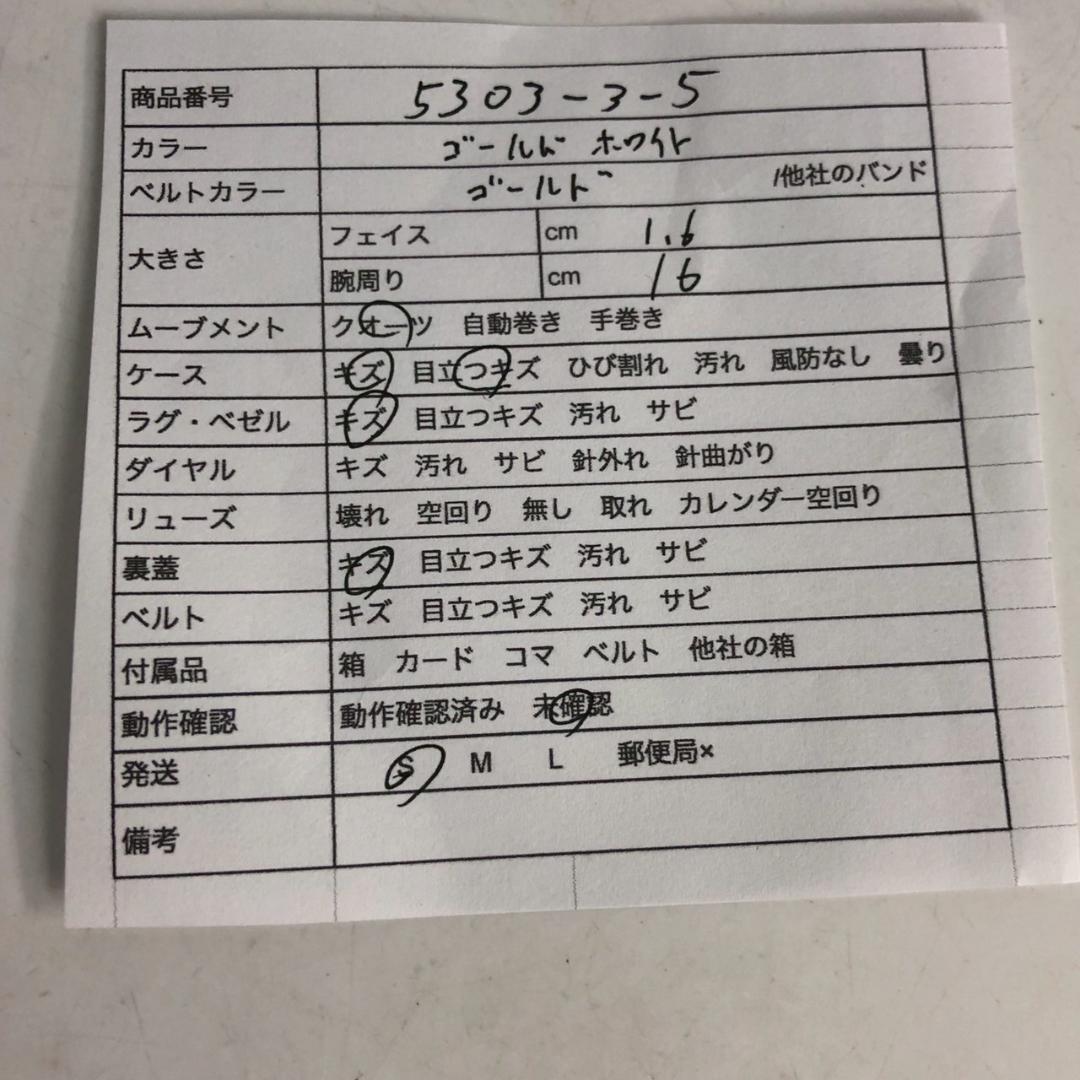 商品番号 5303-3-5
カラー ゴールド ホワイト
ベルトカラー ゴールド /他社のバンド
大きさ フェイス cm 1.6
腕周り cm 16
ムーブメント クオーツ 自動巻き 手巻き
ケース キズ 目立つキズ ひび割れ 汚れ 風防なし 曇り
ラグ・ベゼル キズ 目立つキズ 汚れ サビ
ダイヤル キズ 汚れ サビ 針外れ 針曲がり
リューズ 壊れ 空回り 無し 取れ カレンダー空回り
裏蓋 キズ 目立つキズ 汚れ サビ
ベルト キズ 目立つキズ 汚れ サビ
付属品 箱 カード コマ ベルト 他社の箱
動作確認 動作確認済み 未確認
発送 S M L 郵便局×
備考